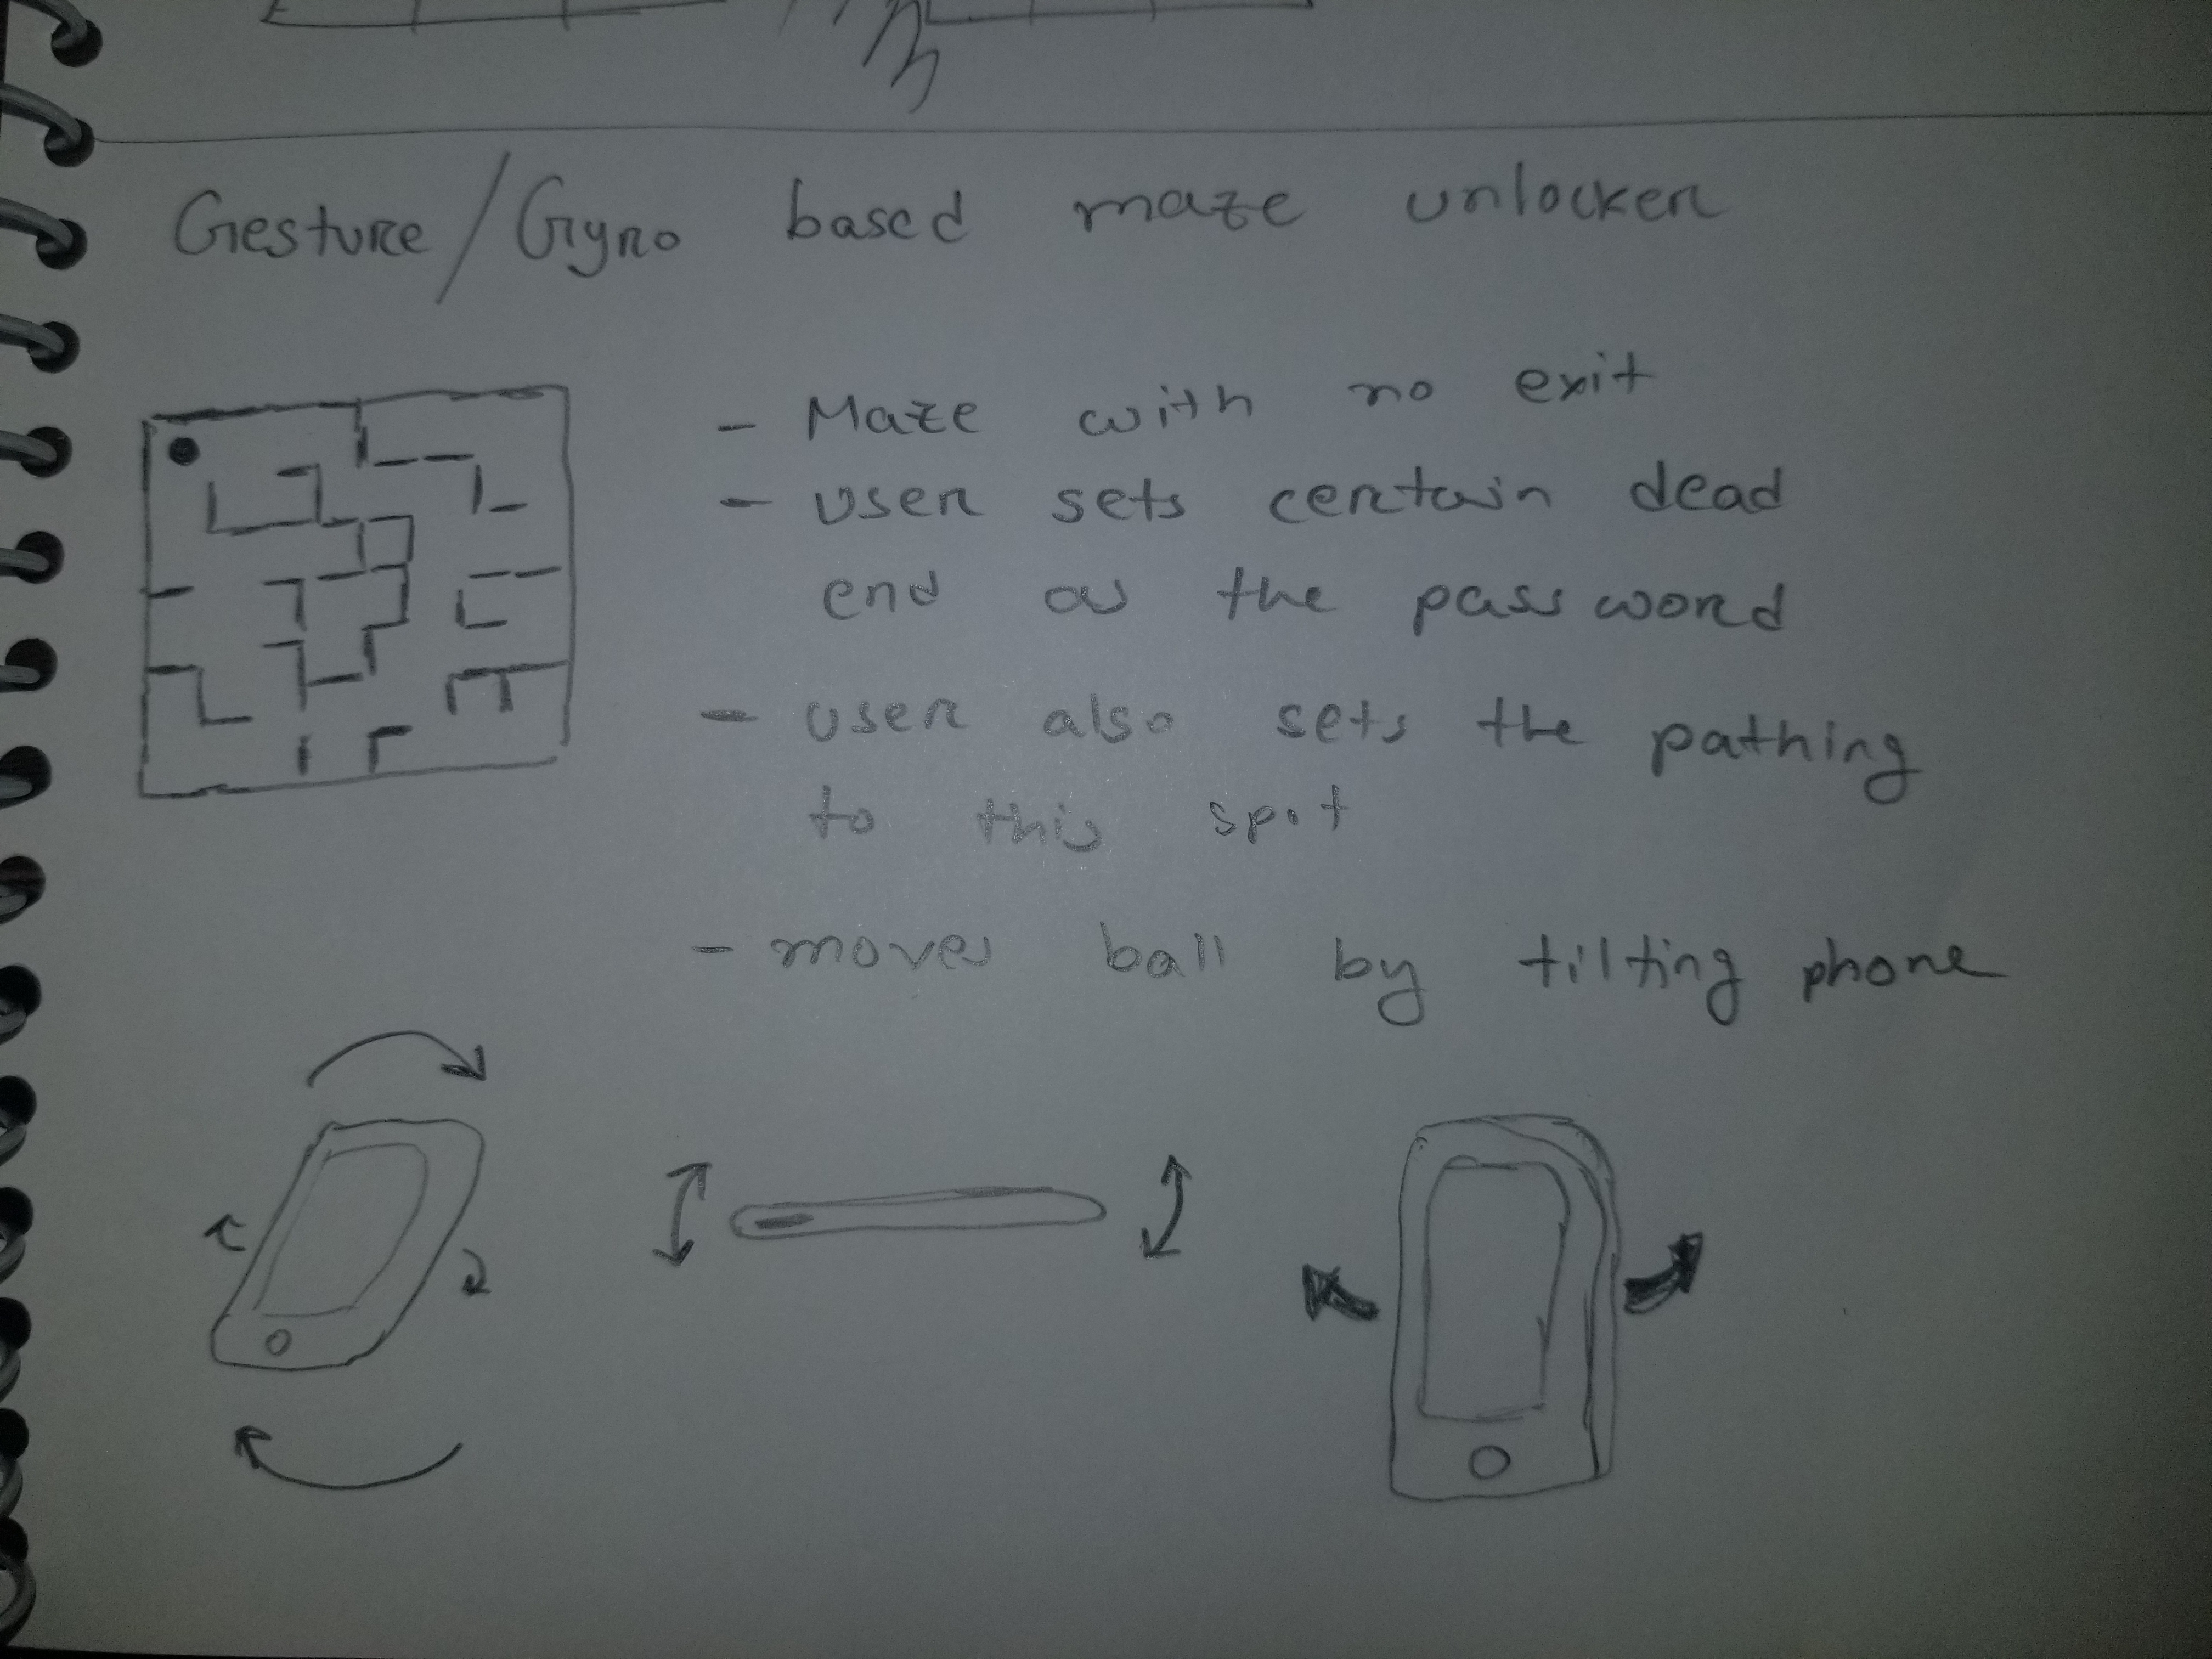 Gesture/Gyro based maze unlocker
- Maze with no exit
- user sets certain dead
end as the password
- user also sets the pathing
to this spot
- moves ball by tilting phone